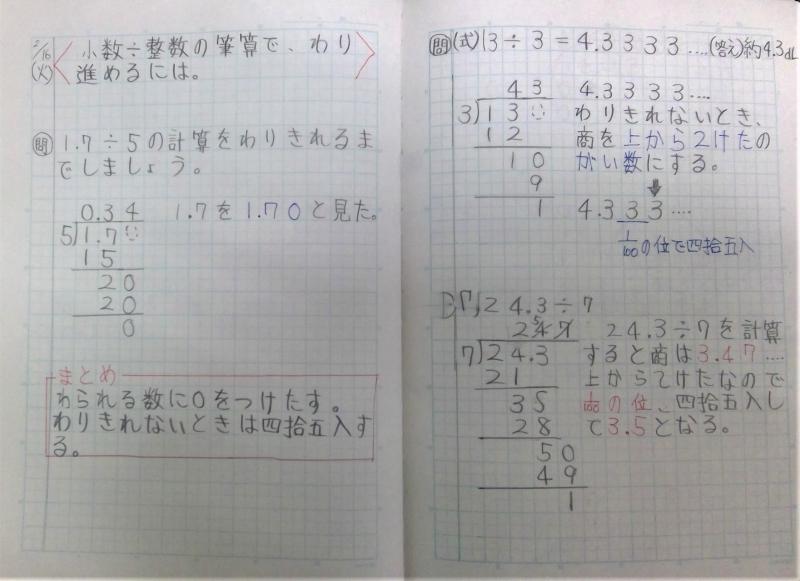 2/16
(火)
小数÷整数の筆算で、わり
進めるには。
問 1.7÷5の計算をわりきれるま
でしましょう。
0.34
5)1.70
15
20
20
0
1.7を1.70と見た。
まとめ
わられる数に0をつけたす。
わりきれないときは四拾五入す
る。
問 (式)13÷3=4.3333....(答え)約4.3dL
43
3)130
12
10
9
1
4.3333....
わりきれないとき、
商を上から2けたの
がい数にする。
⇓
4.333....
1/100の位で四拾五入
24.3÷7
7)24.3
21
35
28
50
49
1
24.3÷7を計算
すると商は3.47....
上から2けたなので
1/100の位、四拾五入し
て3.5となる。